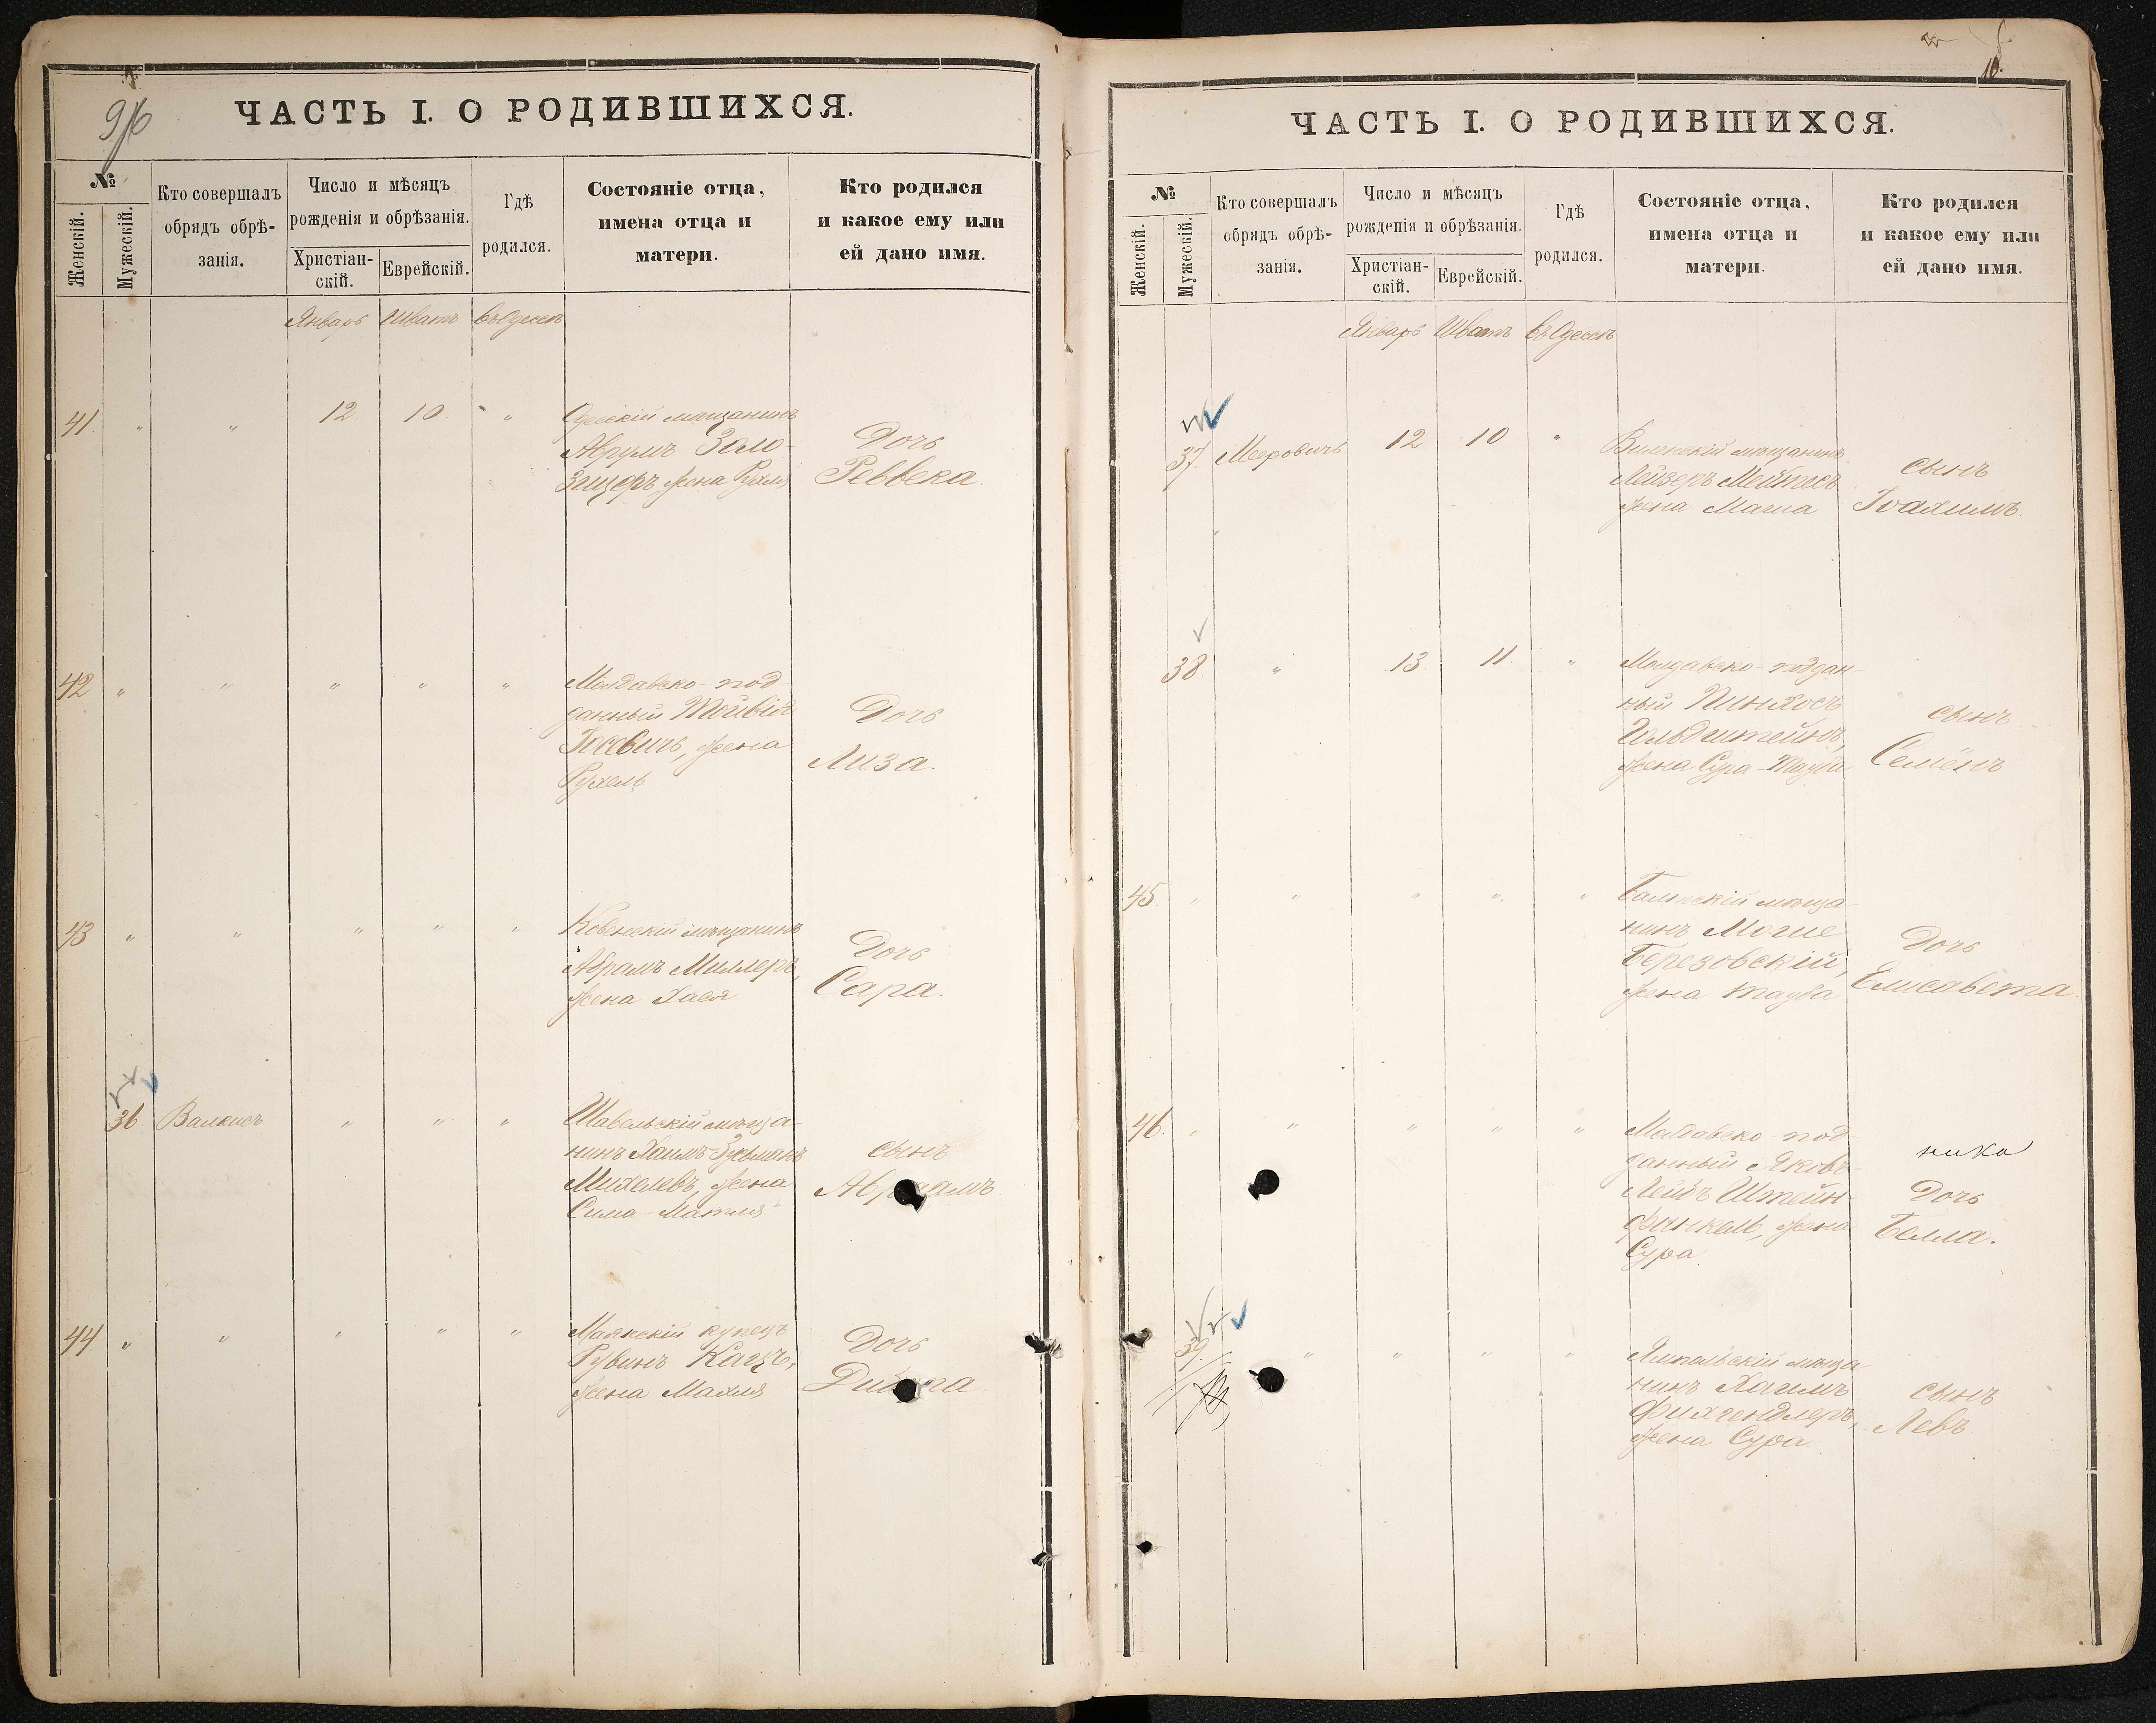 ЧАСТЬ I. О РОДИВШИХСЯ.
№
Женскій.
Мужескій.
Кто совершалъ
обрядъ обрѣ-
занія.
Число и мѣсяцъ
рожденія и обрѣзанія.
Христіан-
скій.
Еврейскій.
Гдѣ
родился.
Состояніе отца,
имена отца и
матери.
Кто родился
и какое ему или
ей дано имя.
Январь Шватъ въ Одессѣ
41 " " 12 10 "
Одесскій мѣщанинъ
Аврумъ
жена Рухля
Дочь
Реввека.
42 " " " " "
Молдавско-под
данный
жена
Рухель
Дочь
Лиза.
43 " " " " "
Ковенскій мѣщанинъ
Абрамъ Миллеръ,
жена Хася
Дочь
Сара.
36 Валкисъ " " "
Шавельскій мѣща-
нинъ Хаимъ-Зусьманъ
Михелевъ, жена
Сима-Матля
сынъ
44 " " " " "
Маякскій купецъ
Рувинъ Кацъ,
жена Махля
Дочь
ЧАСТЬ I. О РОДИВШИХСЯ.
10.
№
Женскій.
Мужескій.
Кто совершалъ
обрядъ обрѣ-
занія.
Число и мѣсяцъ
рожденія и обрѣзанія.
Христіан-
скій.
Еврейскій.
Гдѣ
родился.
Состояніе отца,
имена отца и
матери.
Кто родился
и какое ему или
ей дано имя.
Январь Шватъ въ Одессѣ
37. Меровичъ 12 10 "
Виленскій мѣщанинъ
Лейзеръ Мейтесъ
жена Маша
сынъ
Іоахимъ.
38 " 13 11 "
Молдавско-поддан-
ный Пинхосъ
Гольдштейнъ,
жена Сура-Тауба
сынъ
Семёнъ
45. " " " " "
Балтскій мѣща-
нинъ Мошe
Березовскій,
жена Тауба
Дочь
Елисавета.
46. " " " " "
Молдавско-под
данный Яковъ-
Лейбъ Штейн-
финкель, жена
Сура.
Дочь
Белла.
39. " " " "
Ямпольскій мѣща-
нинъ Хаимъ
Фихгендлеръ,
жена Сура
сынъ
Левъ.